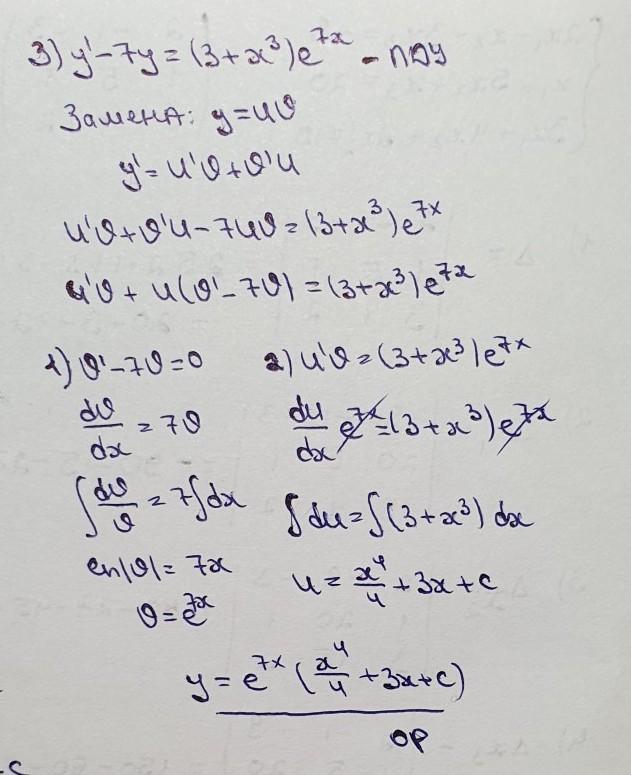 3) y' - 7y = (3 + x³)e^{7x} - ЛДУ
Замена: y = uϑ
y' = u'ϑ + ϑ'u
u'ϑ + ϑ'u - 7uϑ = (3 + x³)e^{7x}
u'ϑ + u(ϑ' - 7ϑ) = (3 + x³)e^{7x}
1) ϑ' - 7ϑ = 0
dϑ/dx = 7ϑ
∫ dϑ/ϑ = 7∫dx
ln|ϑ| = 7x
ϑ = e^{7x}
2) u'ϑ = (3 + x³)e^{7x}
du/dx e^{7x} = (3 + x³)e^{7x}
∫du = ∫(3 + x³) dx
u = x⁴/4 + 3x + c
y = e^{7x} (x⁴/4 + 3x + c)
ОР